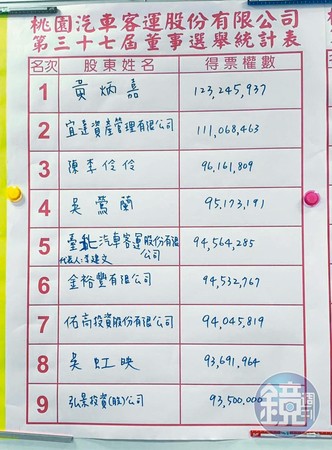 桃園汽車客運股份有限公司
第三十七屆董事選舉統計表
名次 股東姓名 得票權數
1 黃炳嘉 123,245,937
2 宜達資產管理有限公司 111,068,463
3 陳李伶伶 96,161,809
4 吳鶯蘭 95,173,191
5 臺北汽車客運股份有限公司 94,564,285
代表人:李建文
6 金裕豐有限公司 94,532,767
7 佑高投資股份有限公司 94,045,819
8 吳虹映 93,691,964
9 弘景投資(股)公司 93,500,000
鏡週刊